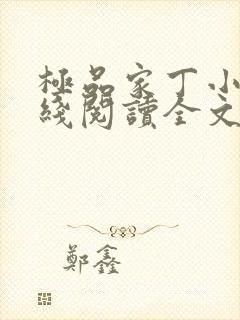 極品家丁小
綫閱讀全文
鄭鑫